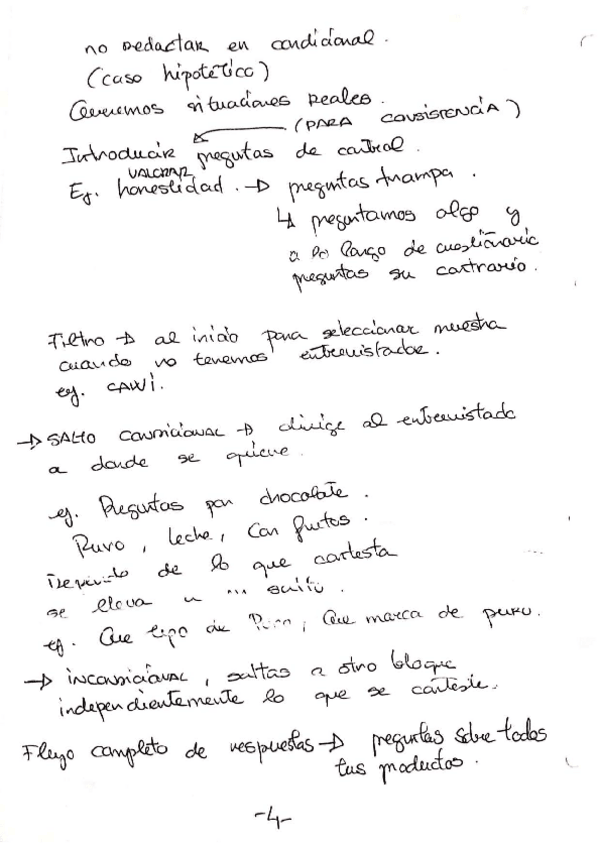 no redactar en condicional.
(caso hipotético)
Queremos situaciones reales.
(PARA CONSISTENCIA)
Introducir preguntas de control.
VALORAR
Eg. honestidad. → preguntas trampa.
↳ preguntamos algo y
a lo largo de cuestionario
preguntas su contrario.
Filtro → al inicio para seleccionar muestra
cuando no tenemos entrevistador.
eg. CAWI.
→ SALTO CONDICIONAL → dirige al entrevistado
a donde se quiere.
eg. Preguntas por chocolate.
Puro, leche, con frutos.
de lo que contesta
se lleva a un salto.
eg. Que tipo de Puro, Que marca de puro.
→ INCONDICIONAL, saltas a otro bloque
independientemente lo que se conteste.
Flujo completo de respuestas → preguntas sobre todos
tus productos.
-4-